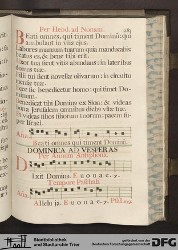 Per Hebd. ad Nonam.
Beati omnes, qui timent Dominum: qui
ambulant in viis ejus.
Labores manuum tuarum quia manducabis:
beatus es, & bene tibi erit.
Uxor tua sicut vitis abundans: in lateribus
domus tuæ.
Filii tui sicut novellæ olivarum: in circuitu
mensæ tuæ.
Ecce sic benedicetur homo: qui timet Dominum.
Benedicat tibi Dominus ex Sion: & videas
bona Jerusalem omnibus diebus vitæ tuæ.
Et videas filios filiorum tuorum: pacem super
Israel.
Beati omnes qui timent Dominum.
DOMINICA AD VESPERAS
Per Annum Antiphona.
Dixit Dominus. E u o u a e.
Tempore Paschali.
Alleluja. E u o u a e.
Stadtbibliothek
und Stadtarchiv Trier
gefördert von der
DFG